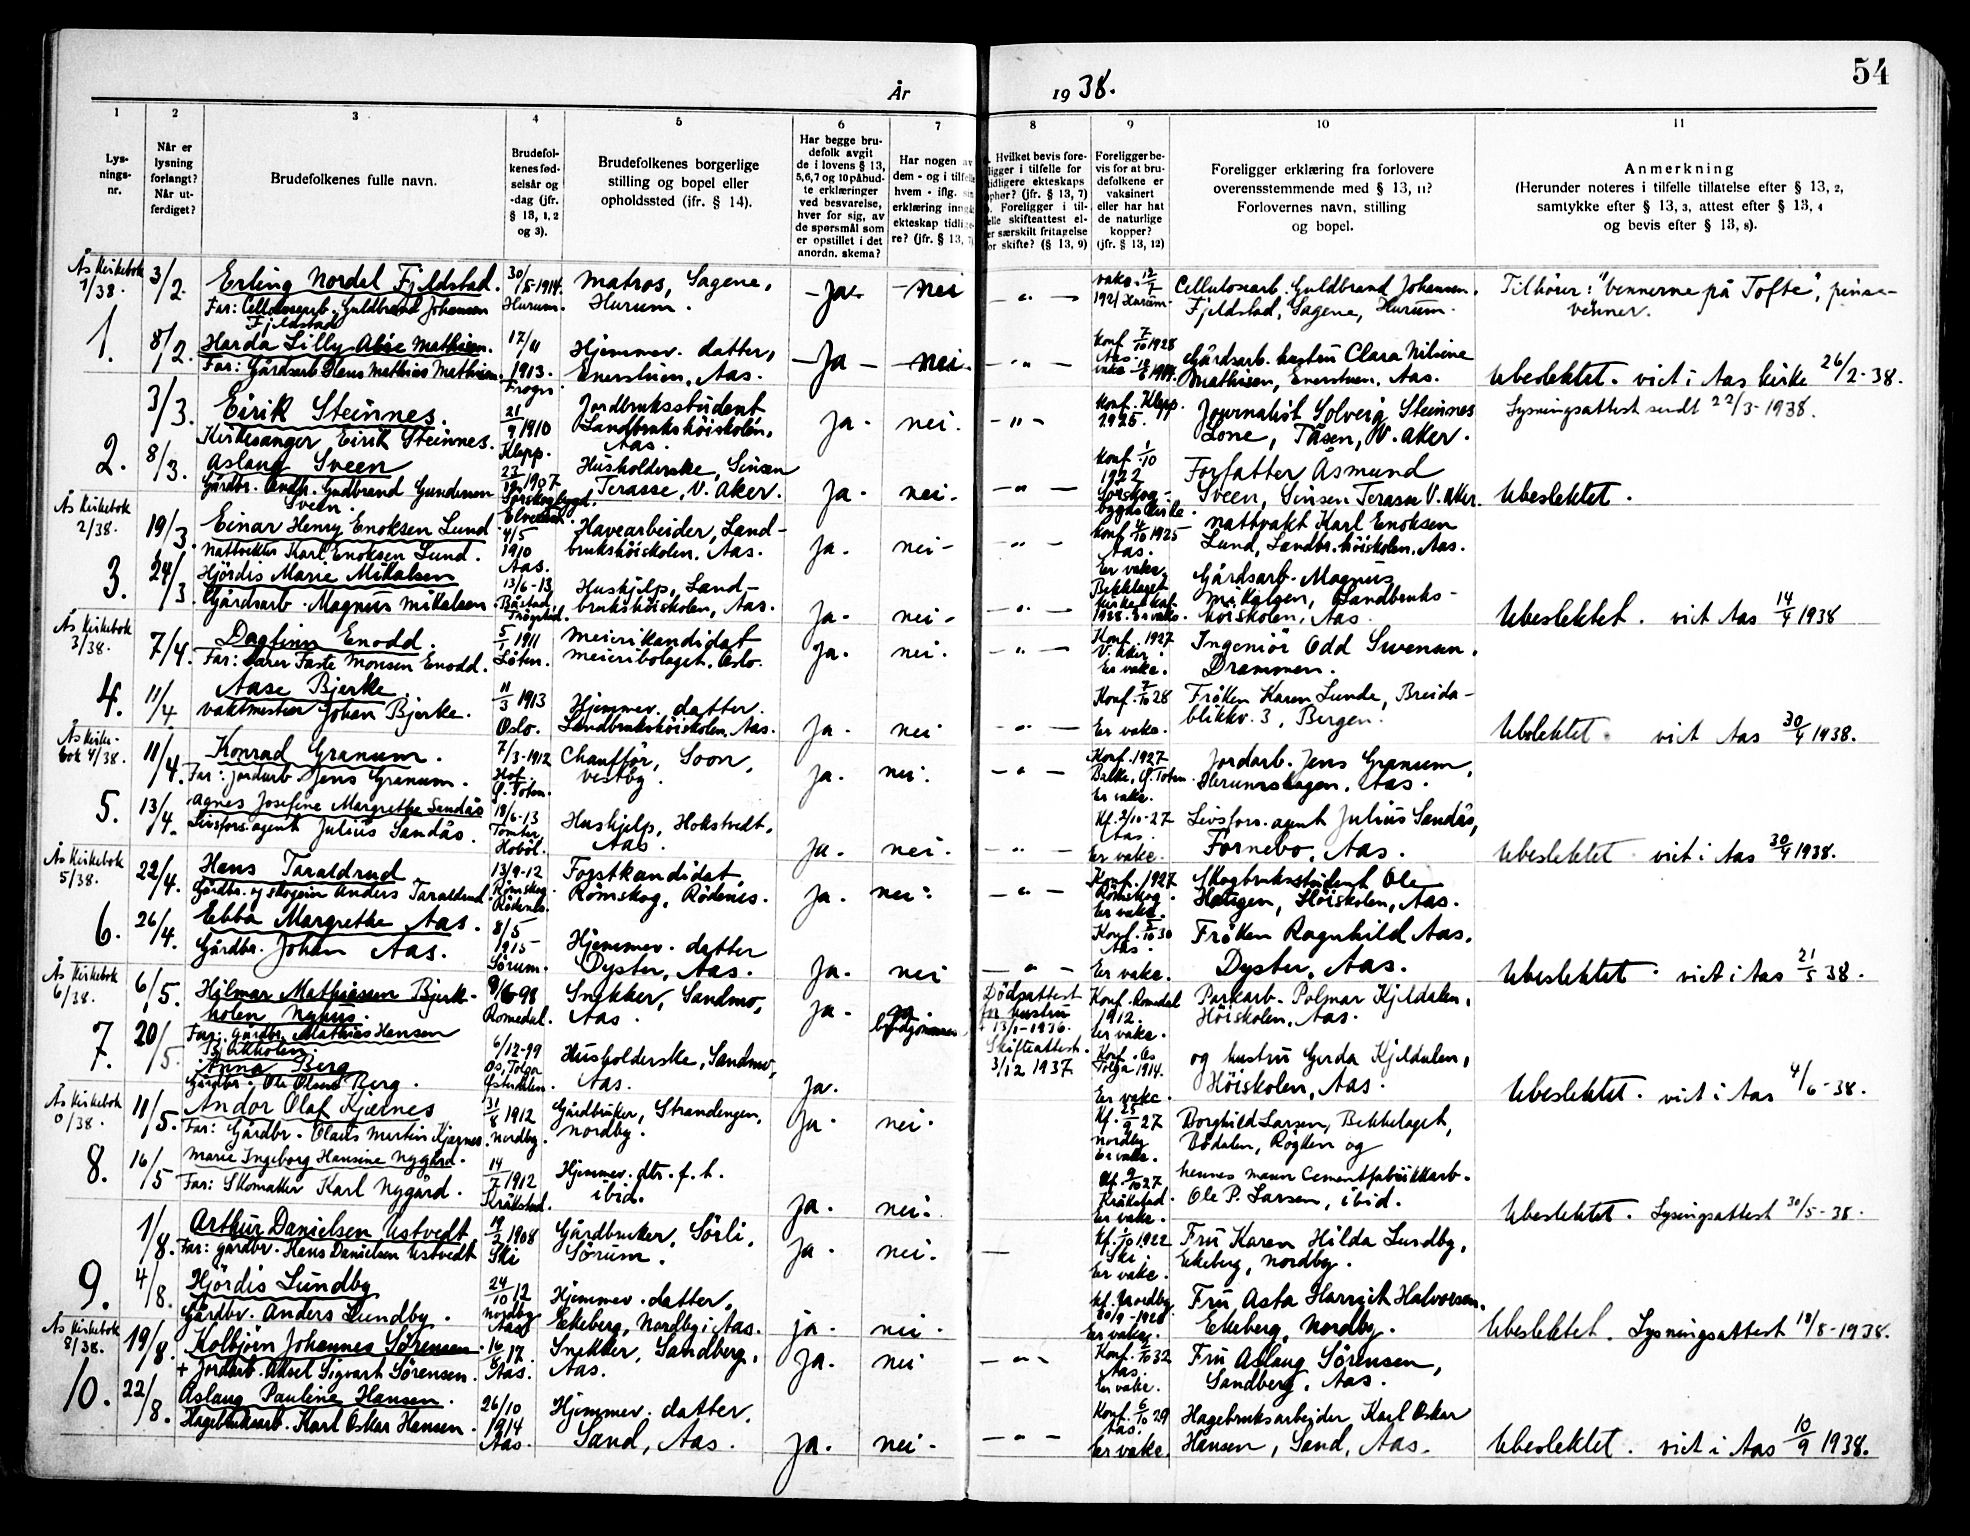 54
År 1938.
1 2 3 4 5 6 7 8 9 10 11
Lys-
nings-
nr.
Når er
lysning
forlangt?
Når ut-
ferdiget?
Brudefolkenes fulle navn.
Brudefol-
kenes fød-
selsår og
-dag (jfr.
§ 13, 1, 2
og 3).
Brudefolkenes borgerlige
stilling og bopel eller
opholdssted (ifr. § 14).
Har begge bru-
defolk avgit
de i lovens § 13,
5,6,7 og 10 påbud-
te erklæringer
ved besvarelse,
hver for sig, av
de spørsmål som
er opstillet i det
anordn. skema?
Har nogen av
dem - og i tilfelle
hvem - iflg. sin
erklæring inngå
ekteskap tidlige-
re? (jfr. § 13, 7)
Hvilket bevis fore-
ligger i tilfelle for
tidligere ekteskaps
ophør? (jfr. § 13, 7)
Foreligger i til-
elle skifteattest el-
er særskilt fritagelse
for skifte? (§ 13, 9)
Foreligger be-
vis for at bru-
defolkene er
vaksinert
eller har hat
de naturlige
kopper?
(jfr. § 13, 12)
Foreligger erklæring fra forlovere
overensstemmende med § 13, 11?
Forlovernes navn, stilling
og bopel.
Anmerkning
(Herunder noteres i tilfelle tillatelse efter § 13, 2,
samtykke efter § 13, 3, attest efter § 13, 4
og bevis efter § 13, 8).
Ås Kirkebok 1/38.
1.
3/2. Erling Nordal Fjeldstad. 30/5-1914. Matros, Sagene, -Ja- -nei - " - vaks. 12/7 Cellulosearb. Guldbrand Johansen. Tilhører: "Vennerne på Tofte", pinse-
Far: Cellulosearb. Guldbrand Johansen Hurum. Hurum. 1921 Hurum. Fjeldstad, Sagene, Hurum. venner.
Fjeldstad
8/2. Harda Lilly Alise Mathisen. 17/11 Hjemmev. datter, -Ja- -nei- - " - Konf. 7/10 1928 Gårdsarb. hustru Clara Nilsine
Far: Gårdsarb. Hans Mathias Mathisen. 1913. Enerstuen, Aas. Aas. Mathisen, Enerstuen, Aas. Ubeslektet. viet i Aas kirke 26/2-38.
Frogn
2.
3/3. Eirik Steinnes. 21/9 1910 Jordbruksstudent Ja. nei. - " - Konf. Klepp. Journalist Solveig Steinnes Lysningsattest sendt 22/3-1938.
Kirkesanger Eirik Steinnes. Klepp. Landbrukshöiskolen, Aas. 1925. Lone, Tåsen, V. Aker.
8/3. Aslaug Sveen 23/12 1907 Husholderske, Sinsen Ja. nei. - " - Konf. 1/10 1922 Forfatter Åsmund
Gårdbr. Andr. Gudbrand Gundersen Sveen. Sørskogbygd. Elverum. Terasse, V. Aker. Sørskog-bygds kirke. Sveen, Sinsen Terasse V. Aker. Ubeslektet.
Ås Kirkebok 2/38.
3.
19/3. Einar Henry Enoksen Lund 4/5 Havearbeider, Land- Ja. nei - - " - Konf. 4/10 1925 nattvakt Karl Enoksen
nattvekter Karl Enoksen Lund. 1910 Aas. brukshöiskolen, Aas. Aas. Er vaks. Lund, Landbr. höiskolen, Aas.
24/3. Hjördis Marie Mikalsen 13/6-13 Hushjelp, Land- Ja. nei - - " - Bekkelaget Gårdsarb. Magnus
Gårdsarb. Magnus Mikalsen. Båstad Trögstad. brukshöiskolen, Aas. kirke Konf. 1928. Er vaks. Mikalsen, Landbruks-höiskolen, Aas. Ubeslektet. viet Aas 14/4 1938
Ås Kirkebok 3/38.
4.
7/4. Dagfinn Enodd. 5/1 1911 Meierikandidat Ja. nei. - " - Konf. 1927 Ingeniör Odd Svensen.
Far: Lærer Faste Monsen Enodd. Löten. Meieribolaget, Oslo. V. Aker. Er vaks. Drammen.
11/4 Aase Bjerke. 11/3 1913 Hjemmev. datter. Ja. nei - " - Konf. 7/10 28 Fröken Karen Lunde, Breida-
vaktmester Johan Bjerke. Oslo. Landbrukshöiskolen, Aas. Er vaks. blikkv. 3, Bergen. Ubeslektet. viet Aas 30/4 1938.
Ås Kirke-
bok 4/38.
5.
11/4. Konrad Granum. 7/3-1912 Chauffør, Soon, Ja. nei. - " - Konf. 1927 Jordarb. Jens Granum,
Far: jordarb. Jens Granum. Hof, Ø. Toten. Vestby. Balke, Ø. Toten. Er vaks. Herumskogen, Aas.
13/4. Agnes Josefine Margrethe Sandås 18/6-13 Hushjelp, Holstvedt, Ja. nei. - " - Kf. 2/10-27 Livsfors. agent Julius Sandås,
Livsfors. agent Julius Sandås. Tomter Hoböl. Aas. Aas. Er vaks. Fornebo, Aas. Ubeslektet. viet i Aas 30/4 1938.
Ås Kirkebok 5/38.
6.
22/4. Hans Taraldrud 13/9-12 Forstkandidat Ja. nei. - " - Konf. 1927 Skogbruksstudent Ole
Gårdbr. og skogeier Anders Taraldrud. Römskog, Rödenes. Römskog, Rödenes. Römskog. Er vaks. Haugen, Höiskolen, Aas.
26/4. Ebba Margrethe Aas. 8/5 Hjemmev. datter Ja. nei - " - Konf. 5/10 30 Fröken Ragnhild Aas.
Gårdbr. Johan Aas. 1915 Sörum. Dyster, Aas. Aas. Er vaks. Dyster, Aas. Ubeslektet. viet i Aas 21/5 38.
Ås Kirkebok 6/38.
7.
6/5. Hilmar Mathiasen Bjerk-holen Nyhus. 9/6-98 Romedal. Snekker, Sandmo, Aas. Ja. brudgommen Dödsattest for hustru 13/1-1936. Konf. Romedal 1912. Er vaks. Parkarb. Polmar Kjeldalen, Höiskolen, Aas.
20/5 Far: gårdbr. Mathias Hansen Bjerkholen Skifteattest 3/12 1937
Anna Berg 6/12-99 Os, Tolga Østerdalen. Husholderske, Sandmo, Aas. Ja. Konf. Os Tolga 1914. Er vaks. og hustru Gerda Kjeldalen, Höiskolen, Aas.
Gårdbr. Ole Olsen Berg. Ubeslektet. viet i Aas 4/6-38.
Ås Kirkebok 0/38.
8.
11/5. Andor Olaf Kjærnes 31/8 1912 Gårdbruker, Strandengen, Ja. nei. Kf. 25/9 27 Borghild Larsen, Bekkelaget,
Far: Gårdbr. Olaus Martin Kjærnes. Nordby. Nordby. Nordby Er vaks. Bödalen, Röyken og
16/5 Marie Ingeborg Hansine Nygård. 14/7 1912 Hjemmev. dtr. f. h. Ja. nei. Kf. 9/10 27 hennes mann Cementfabrikkarb.
Far: Skomaker Karl Nygård. Kråkstad. ibid. Kråkstad. Er vaks. Ole P. Larsen, ibid. Ubeslektet. Lysingsattest 30/5-38.
9.
1/8. Arthur Danielsen Ustvedt 19/2 1908 Gårdbruker, Sörli, Ja. nei. - Kf. 1/10 1922 Fru Karen Hilda Lundby,
Far: gårdbr. Hans Danielsen Ustvedt Ski Sörum. Ski. Er vaks. Ekeberg, Nordby.
4/8. Hjördis Lundby 24/10 12 Hjemmev. datter, ja. nei. Kf. Nordby Fru Asta Harriet Halvorsen.
Gårdbr. Anders Lundby. Nordby Aas Ekeberg, Nordby i Aas. 30/9-1928 Er vaks. Ekeberg, Nordby. Ubeslektet. Lysningsattest 18/8-1938.
Ås Kirkebok 8/38.
10.
19/8. Kolbjörn Johannes Sörensen. 16/8 17. Snekker, Sandberg, Ja. nei - " - Konf. 2/10 32 Fru Aslaug Sörensen,
+ Jordarb. Aksel Sigvart Sörensen. Aas. Aas. Aas. Er vaks. Sandberg, Aas.
22/8. Aslaug Pauline Hansen. 26/10 Hjemmev. datter, Ja. nei. - " - Konf. 6/10 29 Hagebruksarbeider Karl Oskar
Hagebruksarb. Karl Oskar Hansen. 1914 Aas. Sand, Aas. Aas. Er vaks. Hansen, Sand, Aas. Ubeslektet. viet i Aas 10/9 1938.